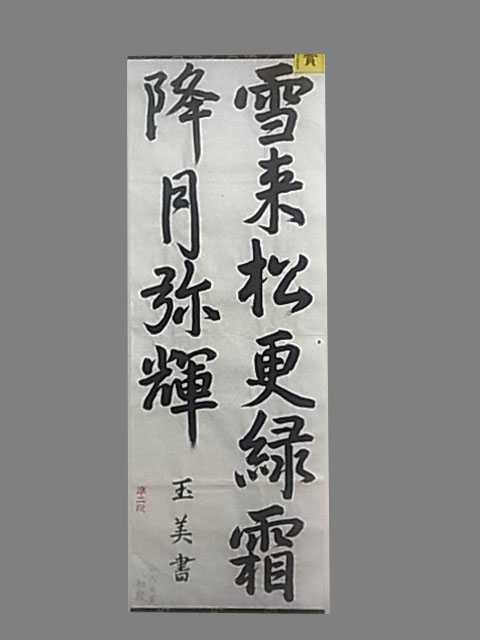 雪来松更緑霜
降月弥輝
玉美書
準二段
賞